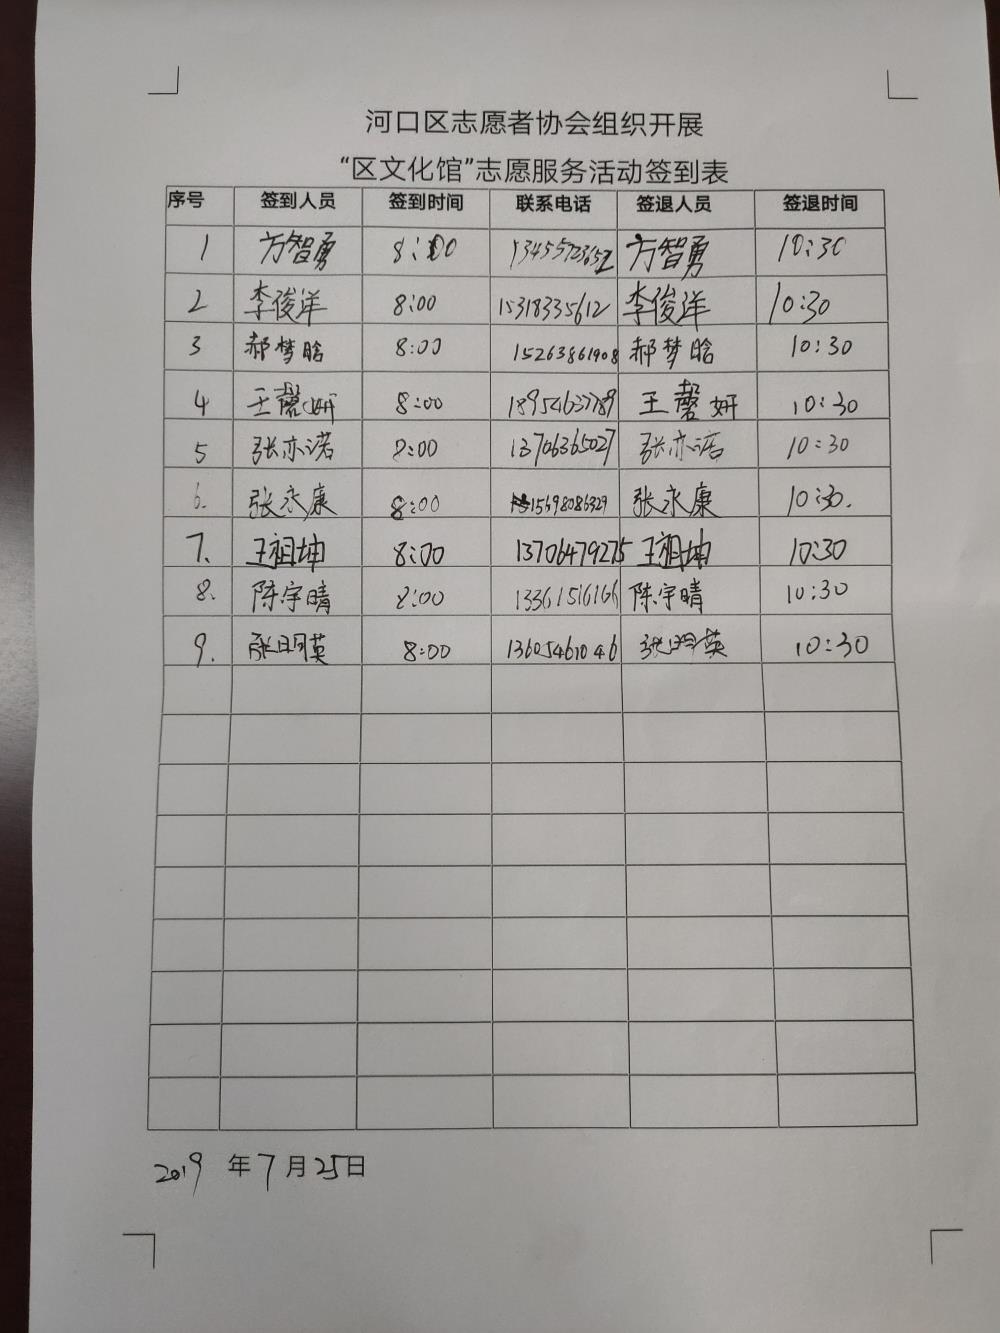 河口区志愿者协会组织开展
“区文化馆”志愿服务活动签到表
序号 签到人员 签到时间 联系电话 签退人员 签退时间
1 方智勇 8:00 13455723652 方智勇 10:30
2 李俊洋 8:00 15318335612 李俊洋 10:30
3 郝梦晗 8:00 15263861908 郝梦晗 10:30
4 王馨妍 8:00 18954637789 王馨妍 10:30
5 张亦诺 8:00 13706365027 张亦诺 10:30
6. 张永康 8:00 15698086329 张永康 10:30.
7. 王祖坤 8:00 13706479275 王祖坤 10:30
8. 陈宇晴 8:00 13361516166 陈宇晴 10:30
9. 张明英 8:00 13605461046 张明英 10:30
2019 年 7 月 25 日